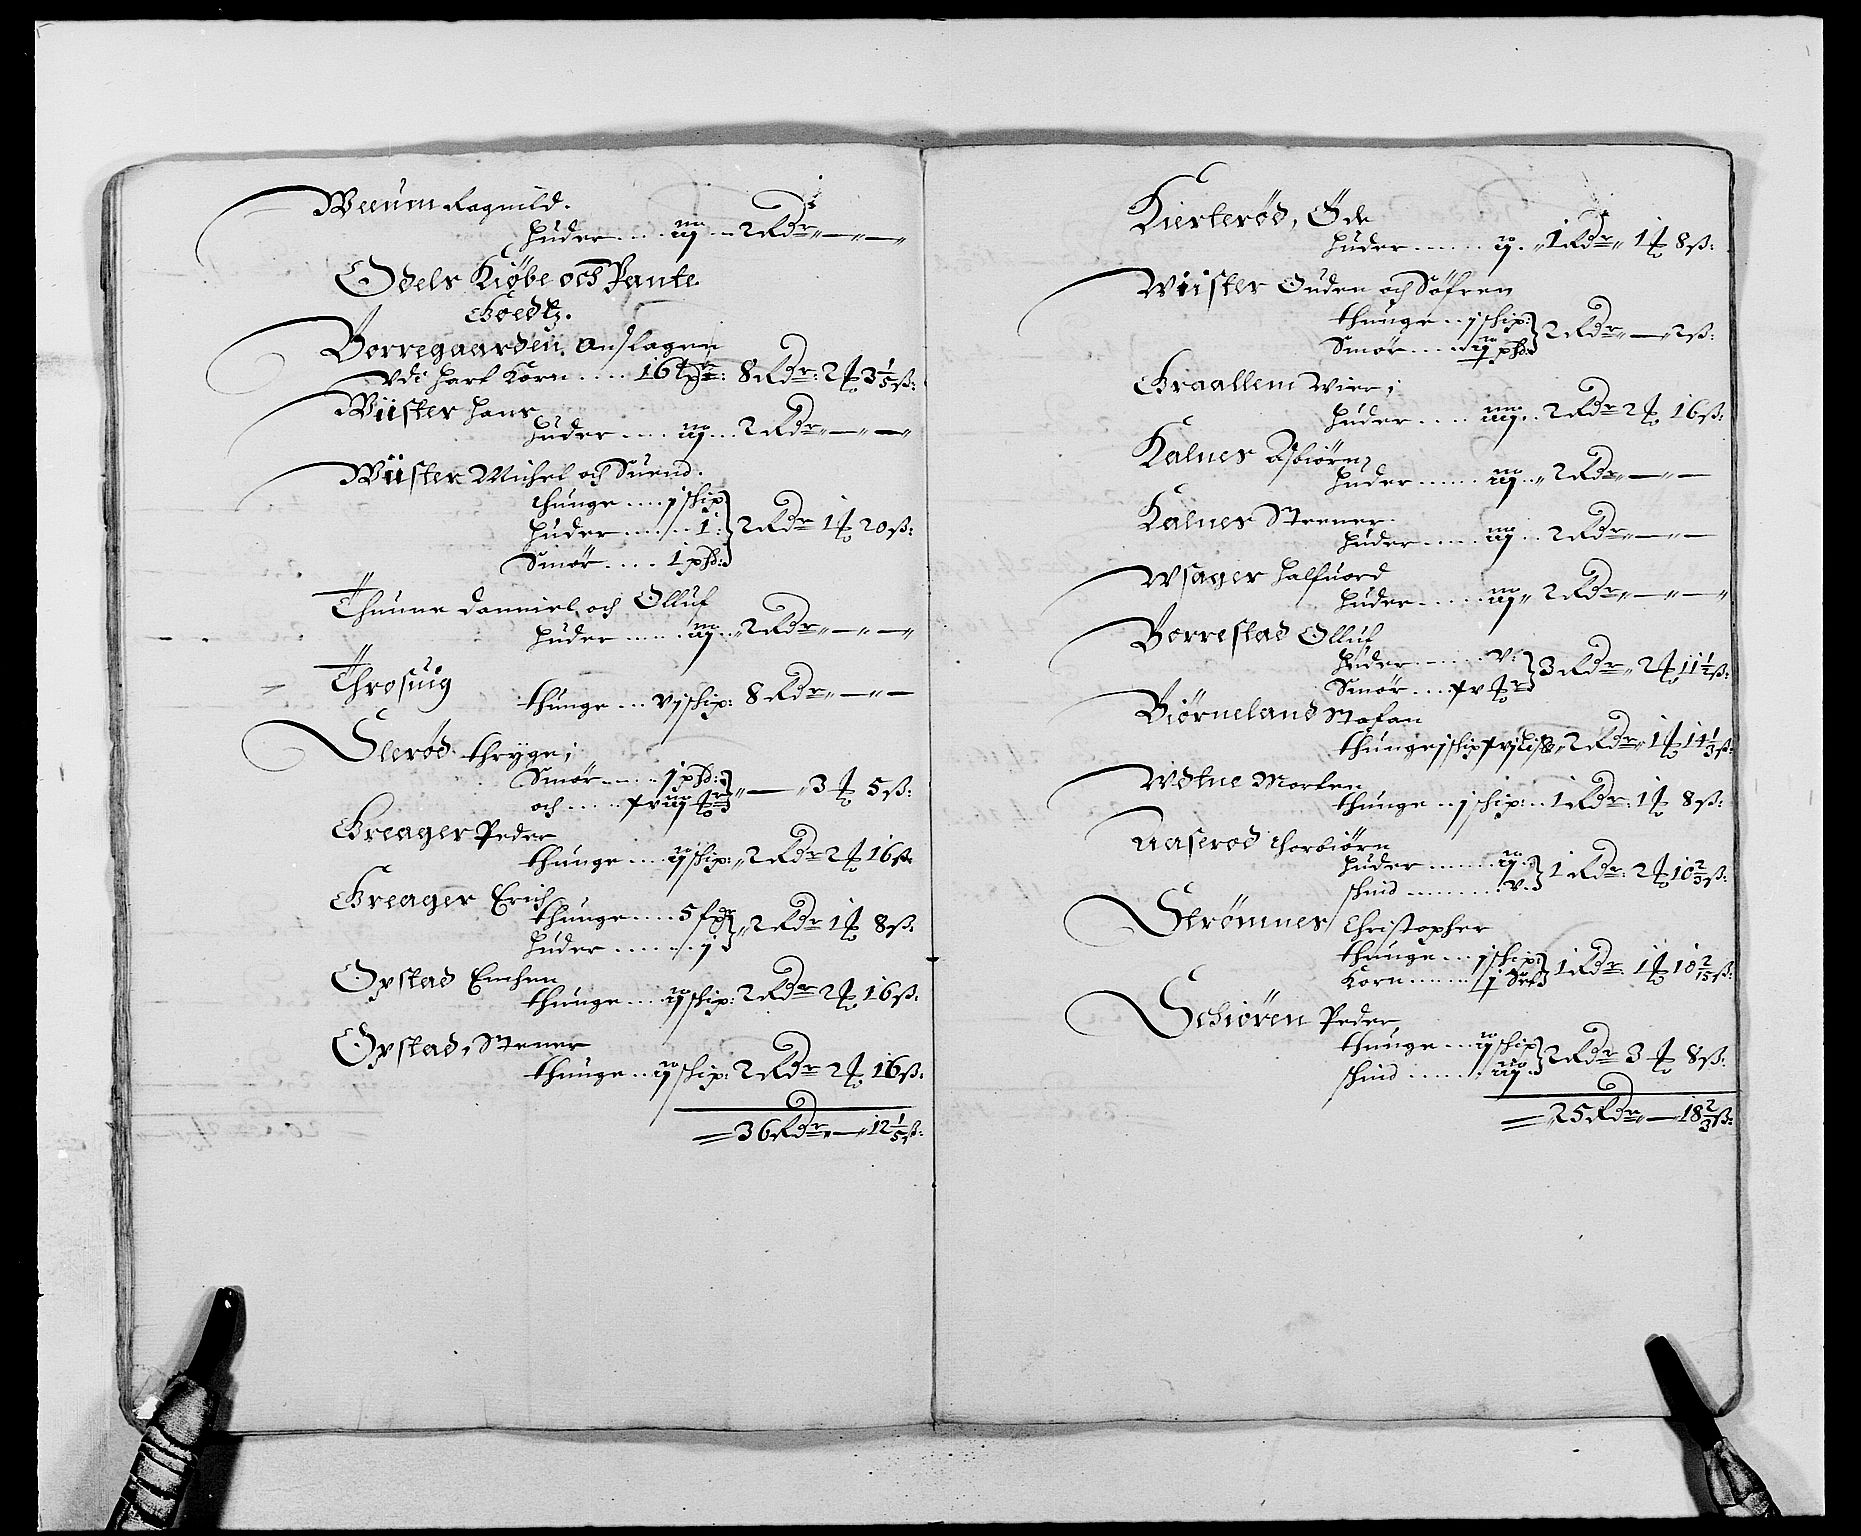 Weeum Ragnild.
Huder .... iij ... 2 Rdr „—„—„
Odels Kiøbe och Pante
Goedtz.
Borregaarden, Anslagen
Vdi hart Korn .... 16 tdr: 8 Rdr: 2 ₰ 3 1/5 ß:
Wiister Hans
Huder .... iij ... 2 Rdr „—„—„
Wiister Michel och Suend.
thunge .... j schip
Huder ...... 1 2 Rdr 1 ₰ 20 ß:
Smør .... 1 pd:
Thuune Danniel och Olluf
Huder ...... iij .. 2 Rdr „—„—„
Throsuig
thunge ... vj schip: 8 Rdr „—„—
Slerød thryge;
Smør ..... j pd:
och ..... xviij „—„ 3 ₰ 5 ß:
Greager Peder
thunge .... ij schip: „2 Rdr 2 ₰ 16 ß:
Greager Erich
thunge .... 5 fr
Huder ........ j „2 Rdr 1 ₰ 8 ß:
Opstad Emhen
thunge .... ij schip: 2 Rdr 2 ₰ 16 ß:
Opstad, Stener
thunge .. ij schip: 2 Rdr 2 ₰ 16 ß:
= 36 Rdr „—„ 12 1/5 ß:
Kierterød, Öde
Huder ....... ij. „1 Rdr „ 1 ₰ 8 ß:
Wiister Ouden och Söfren
thunge .. j schip:
Smør .... ij pd: 2 Rdr „—„ 2 ß:
Graallem Wier;
Huder .... iiij .. 2 Rdr 2 ₰ 16 ß:
Kalnes Asbiørn
Huder ...... iij .. 2 Rdr „—„—
Kalnes Steener
Huder ...... iij .. 2 Rdr „—„—
Wsager Halfuord
Huder ...... iij „ 2 Rdr „—„—„
Borrestad Olluf
Huder ...... v
Smør ... xv 3 Rdr „ 2 ₰ 11 1/2 ß:
Biørneland Stafan
thunge j schip „2 Rdr „ 1 ₰ 14 1/3 ß:
Wdtne Morten
thunge .. j schip: .. 1 Rdr: 1 ₰ 8 ß:
Aaserod Thorbiørn
Huder ....... ij
schind ........ v 1 Rdr: 2 ₰ 10 2/3 ß:
Strømnes Christopher
thunge ... j schip:
Korn ....... j 1 Rdr 1 ₰ 10 2/15 ß:
Schiøren Peder
thunge ... ij schip
schind ....... iij 2 Rdr 3 ₰ 8 ß:
= „25 Rdr „— 18 2/3 ß: